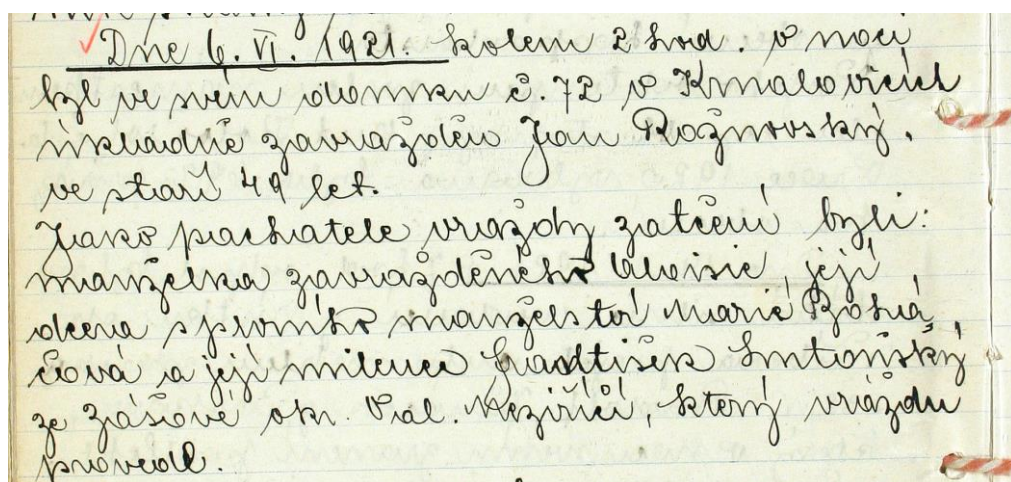 Dne 6. VI. 1921. kolem 2 hod. v noci
byl ve svém domku č. 72 v Kmalovicích
úkladně zavražděn Jan Rožnovský,
ve staří 49 let.
Jako pachatele vraždy zatčeni byli:
manželka zavražděného Aloisie, její
dcera s prvního manželství Marie
čová a její milenec František
ze Zášové okr. Val. Meziříčí, který vraždu
provedl.